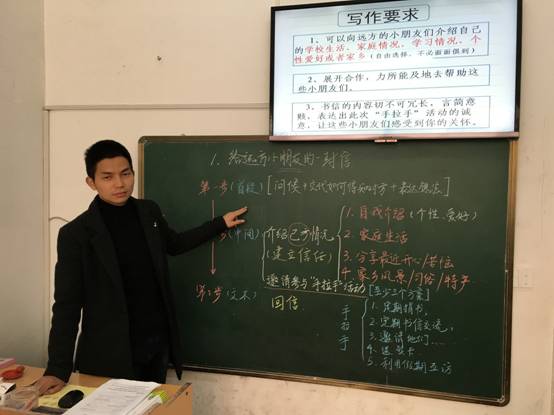 写作要求
1、可以向远方的小朋友们介绍自己
的学校生活、家庭情况、学习情况、个
性爱好或者家乡（自由选择，不必面面俱到）
2、展开合作，力所能及地去帮助这
些小朋友们。
3、书信的内容切不可冗长，言简意
赅，表达出此次“手拉手”活动的诚
意，让这些小朋友们感受到你的关怀。
1.给远方小朋友的一封信
第一步(首段)[问候+交代如何得知对方+表达想法]
步(中间)
介绍己方情况
(建立信任)
1.自我介绍(个性、爱好)
2.家庭生活
3.分享最近开心/苦恼
4.家乡风景/习俗/特产
邀请参与“手拉手”活动
[至少三个方案]
第3步(文末)
回信
手拉手
1.定期捐书,
2.定期书信交流,
3.邀请他们……
4.送贺卡
5.利用假期互访